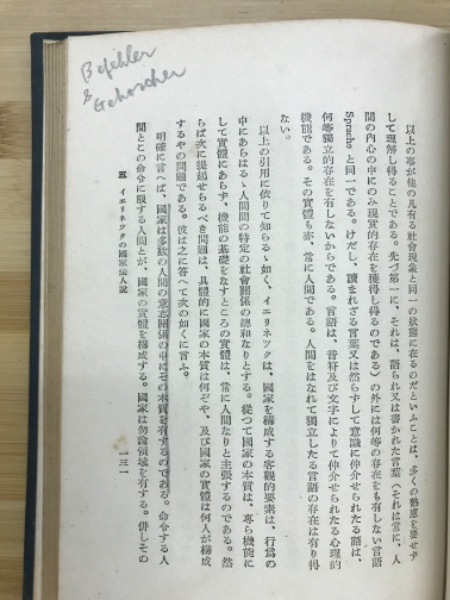 Befehler
& Gehorcher
以上の事が他の凡有る社會現象と同一の狀態に在るのだといふことは、多くの熟慮を要せず
して理解し得ることである。先づ第一に、それは、語られ又は書かれた言葉(それは常に、人
間の內心の中にのみ現實的存在を獲得し得るのである)の外には何等の存在をも有しない言語
Sprache と同一である。けだし、讀まれざる言葉又は然らずして意識に仲介せられたる語は、
何等獨立的存在を有しないからである。言語は、音符及び文字によりて仲介せられたる心理的
機能である。その實體も亦、常に人間である。人間をはなれて獨立したる言語の存在は有り得
ない。
以上の引用に依りて知らるゝ如く、イエリネツクは、國家を構成する客觀的要素は、行爲の
中にあらはるゝ人間間の特定の社會關係の總和なりとする。從つて國家の本質は、專ら機能に
して實體にあらず、機能の基礎をなすところの實體は、常に人間なりと主張するのである。然
らば次に提起せらるべき問題は、具體的に國家の本質は何ぞや、及び國家の實體は何人が構成
するやの問題である。彼は之に答へて次の如くに言ふ。
明確に言へば、國家は多數の人間の意志關係の中にその本質を有するのである。命令する人
間とこの命令に服する人間とが、國家の實體を構成する。國家は勿論領域を有する。併しその
五 イエリネツクの國家法人說
一三一